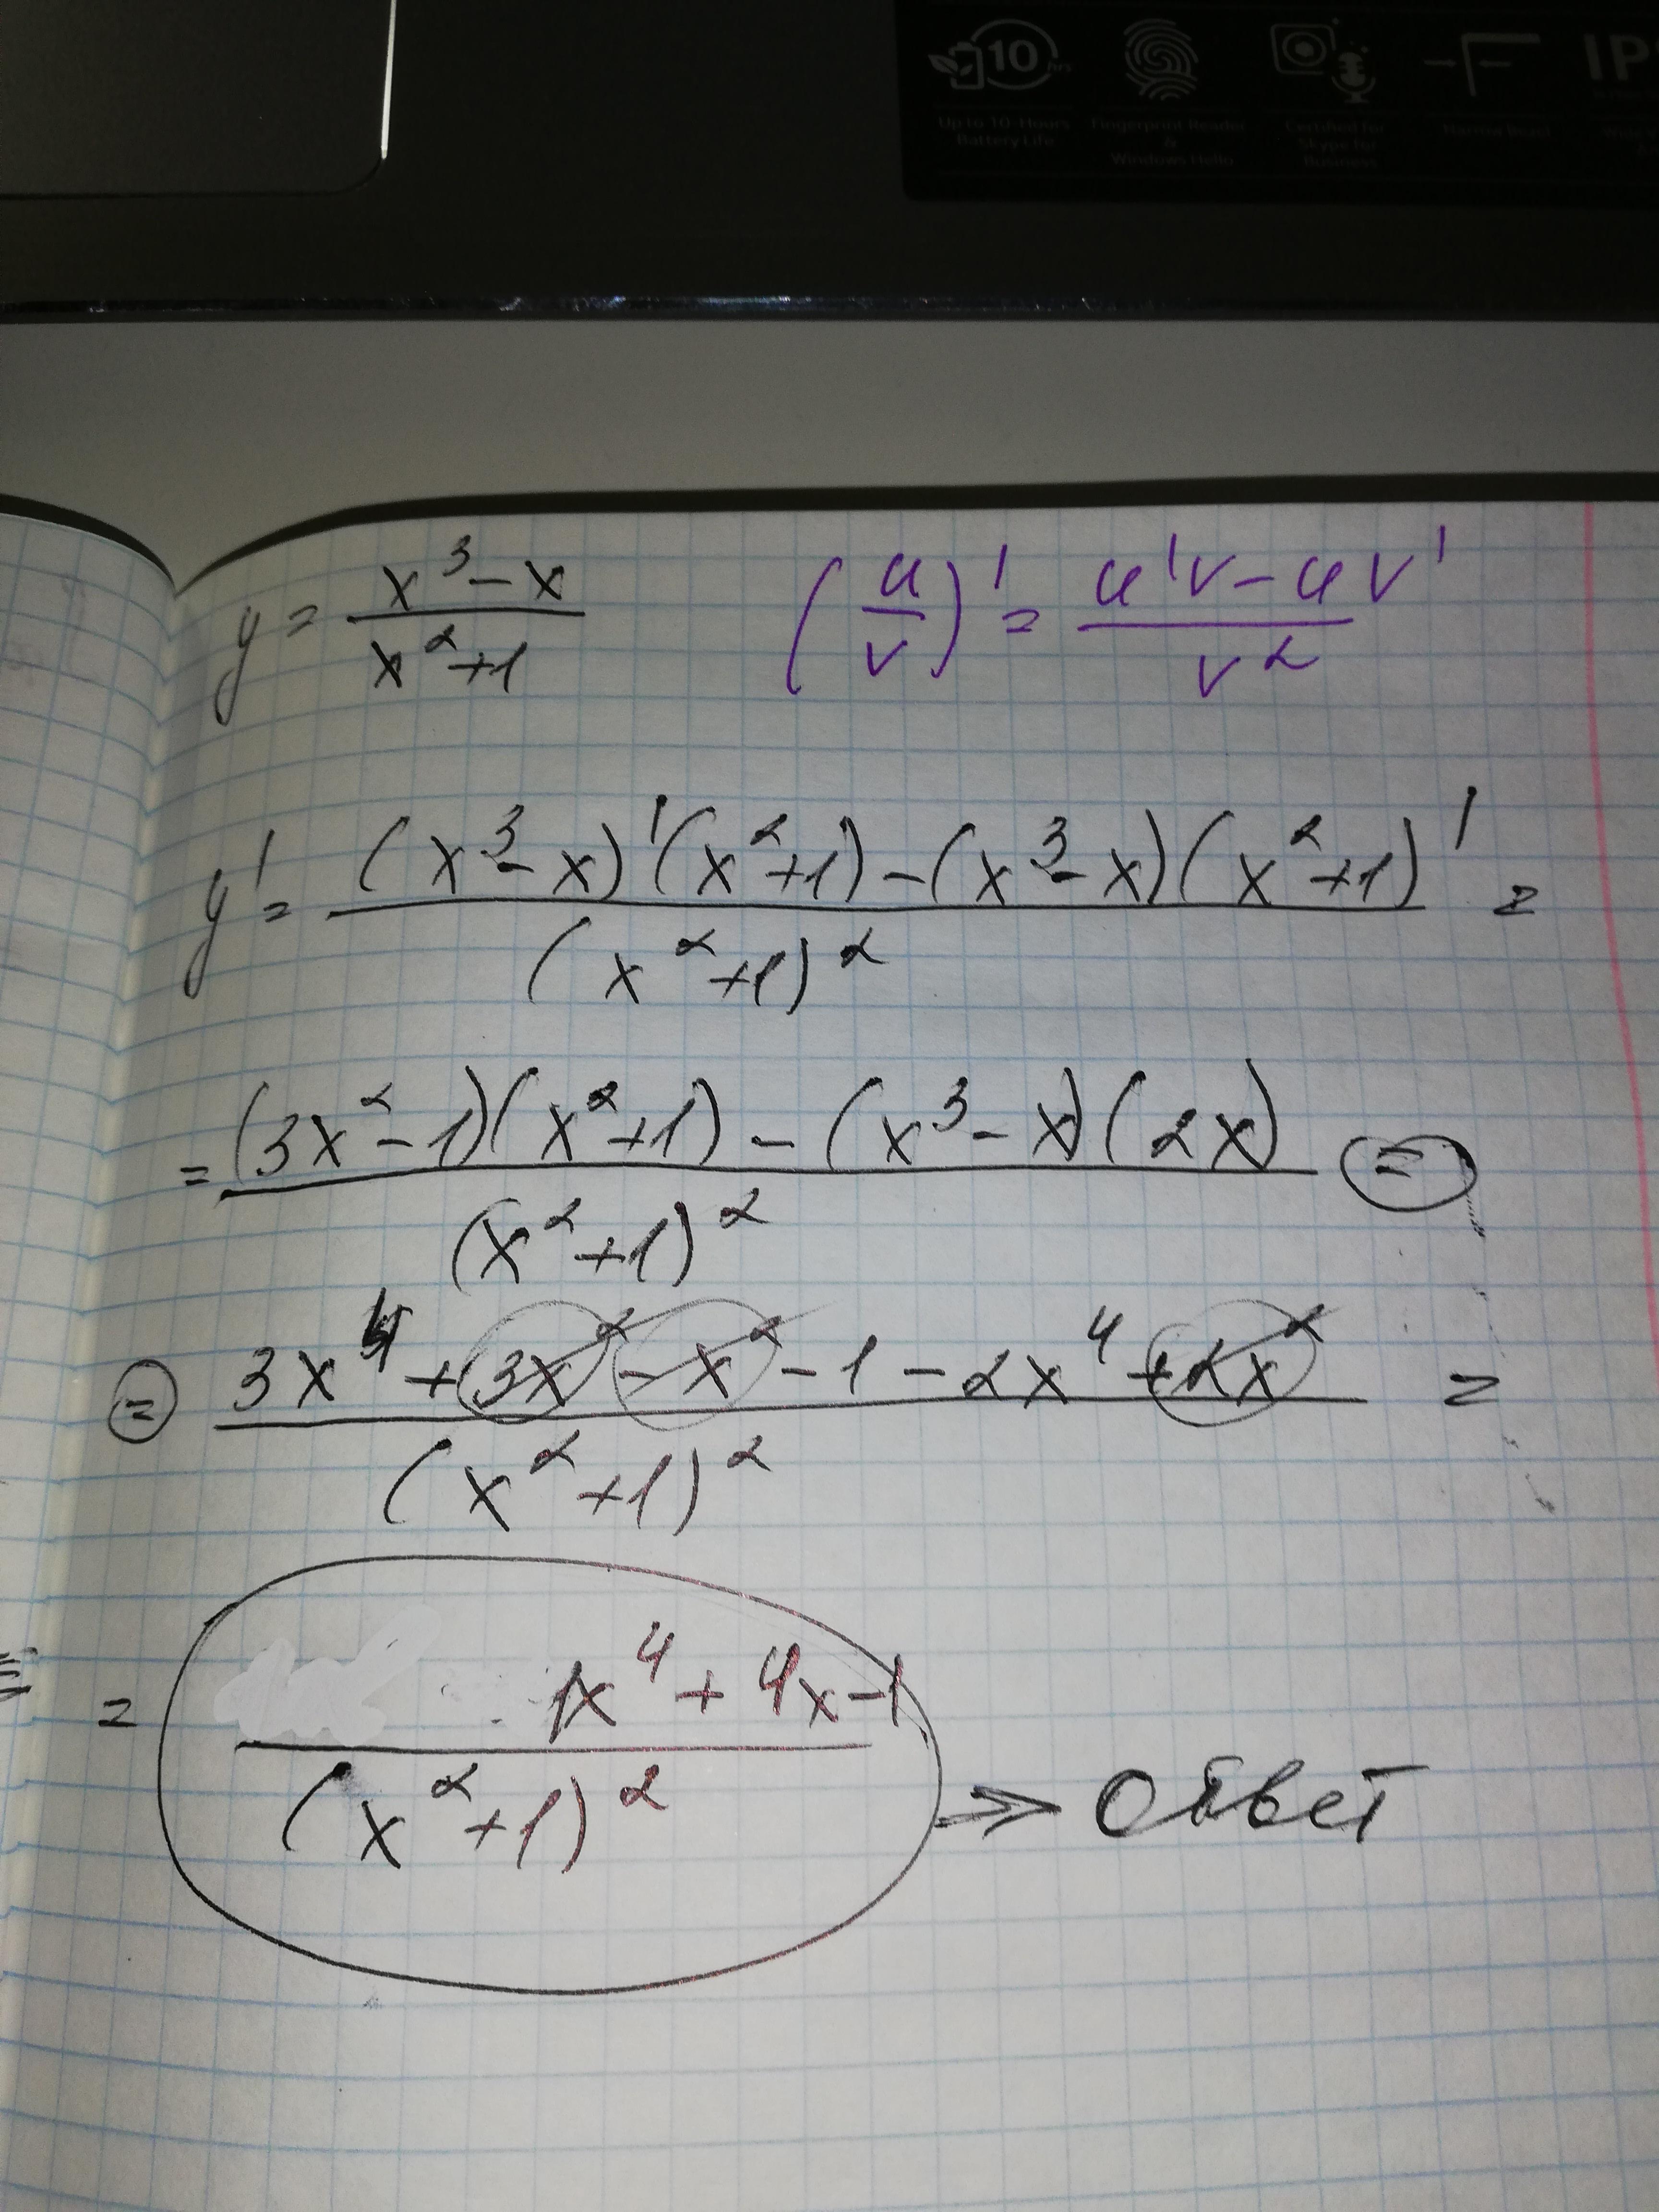 10 hrs
IPS
Up to 10-Hours Battery Life
Fingerprint Reader & Windows Hello
Certified for Skype for Business
y = (x³ - x)/(x² + 1) (u/v)' = (u'v - uv')/v²
y' = ((x³ - x)'(x² + 1) - (x³ - x)(x² + 1)')/(x² + 1)² =
= ((3x² - 1)(x² + 1) - (x³ - x)(2x))/(x² + 1)² =
= (3x⁴ + 3x² - x² - 1 - 2x⁴ + 2x²)/(x² + 1)² =
= (1x⁴ + 4x - 1)/(x² + 1)² => Ответ